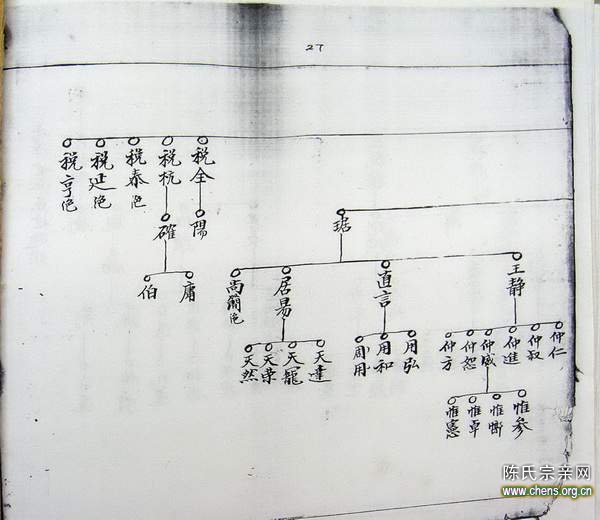 27
税全
税杭
税泰色
税延色
税亨色
陽
確
庸
伯
琚
王静
直言
居易
尚簡色
仲仁
仲叔
仲進
仲威
仲恕
仲方
用弘
用和
周用
天達
天寵
天榮
天然
惟参
惟斷
惟卓
惟憲
陈氏宗亲网
www.chens.org.cn